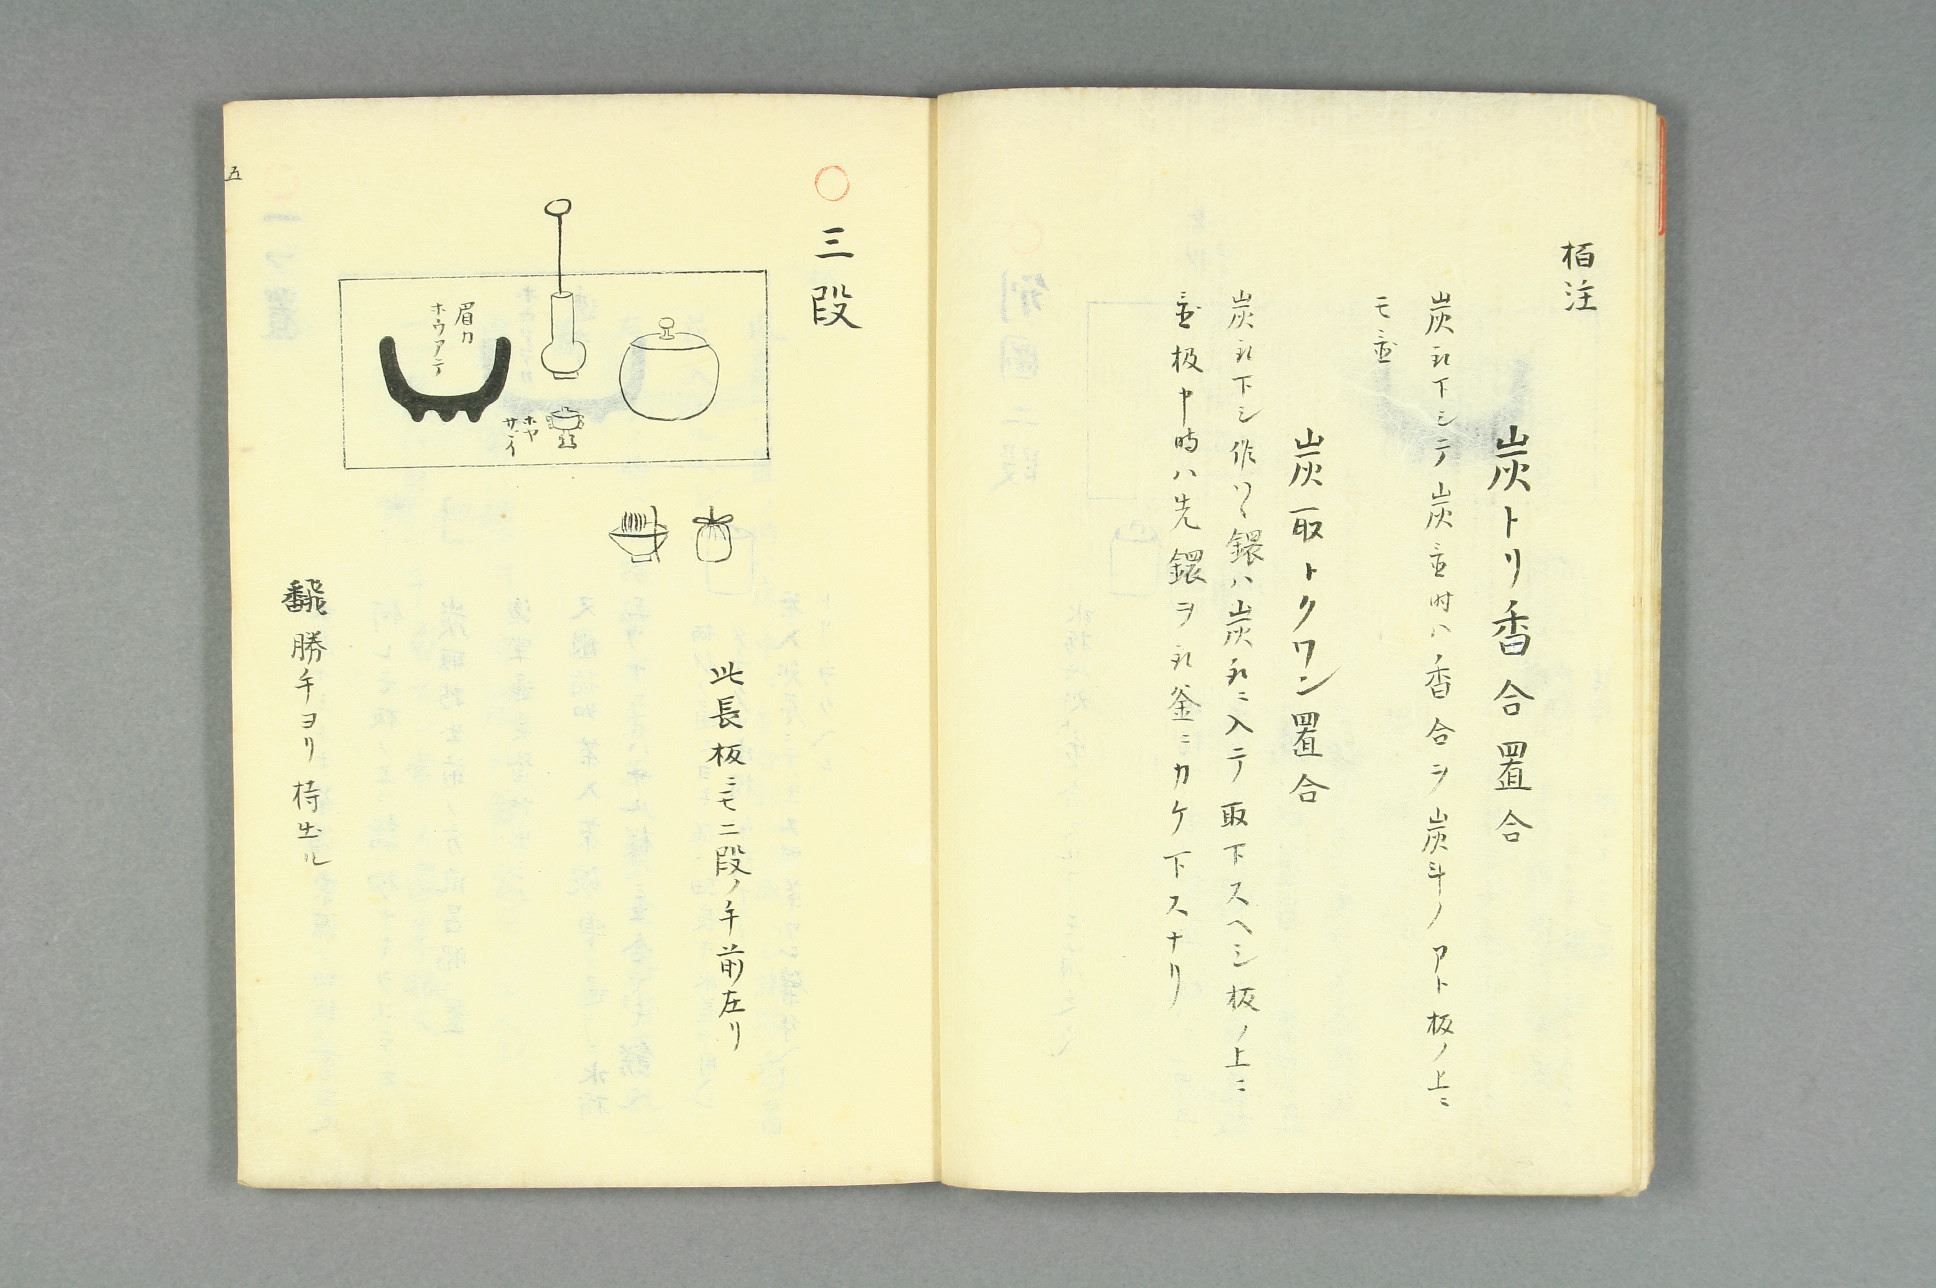 栢注
炭トリ香合置合
炭取下シテ炭置時ハ香合ヲ炭斗ノアト板ノ上ニ
モ置
炭取トクワン置合
炭取下シ作リ鐶ハ炭取ニ入テ取下スヘシ板ノ上ニ
置板中時ハ先鐶ヲ取釜ニカケ下スナリ
○三段
眉カ
ホウアテ
ホヤ
サイ
此長板ニモ二段ノ手前在リ
飜勝手ヨリ持出ル
五